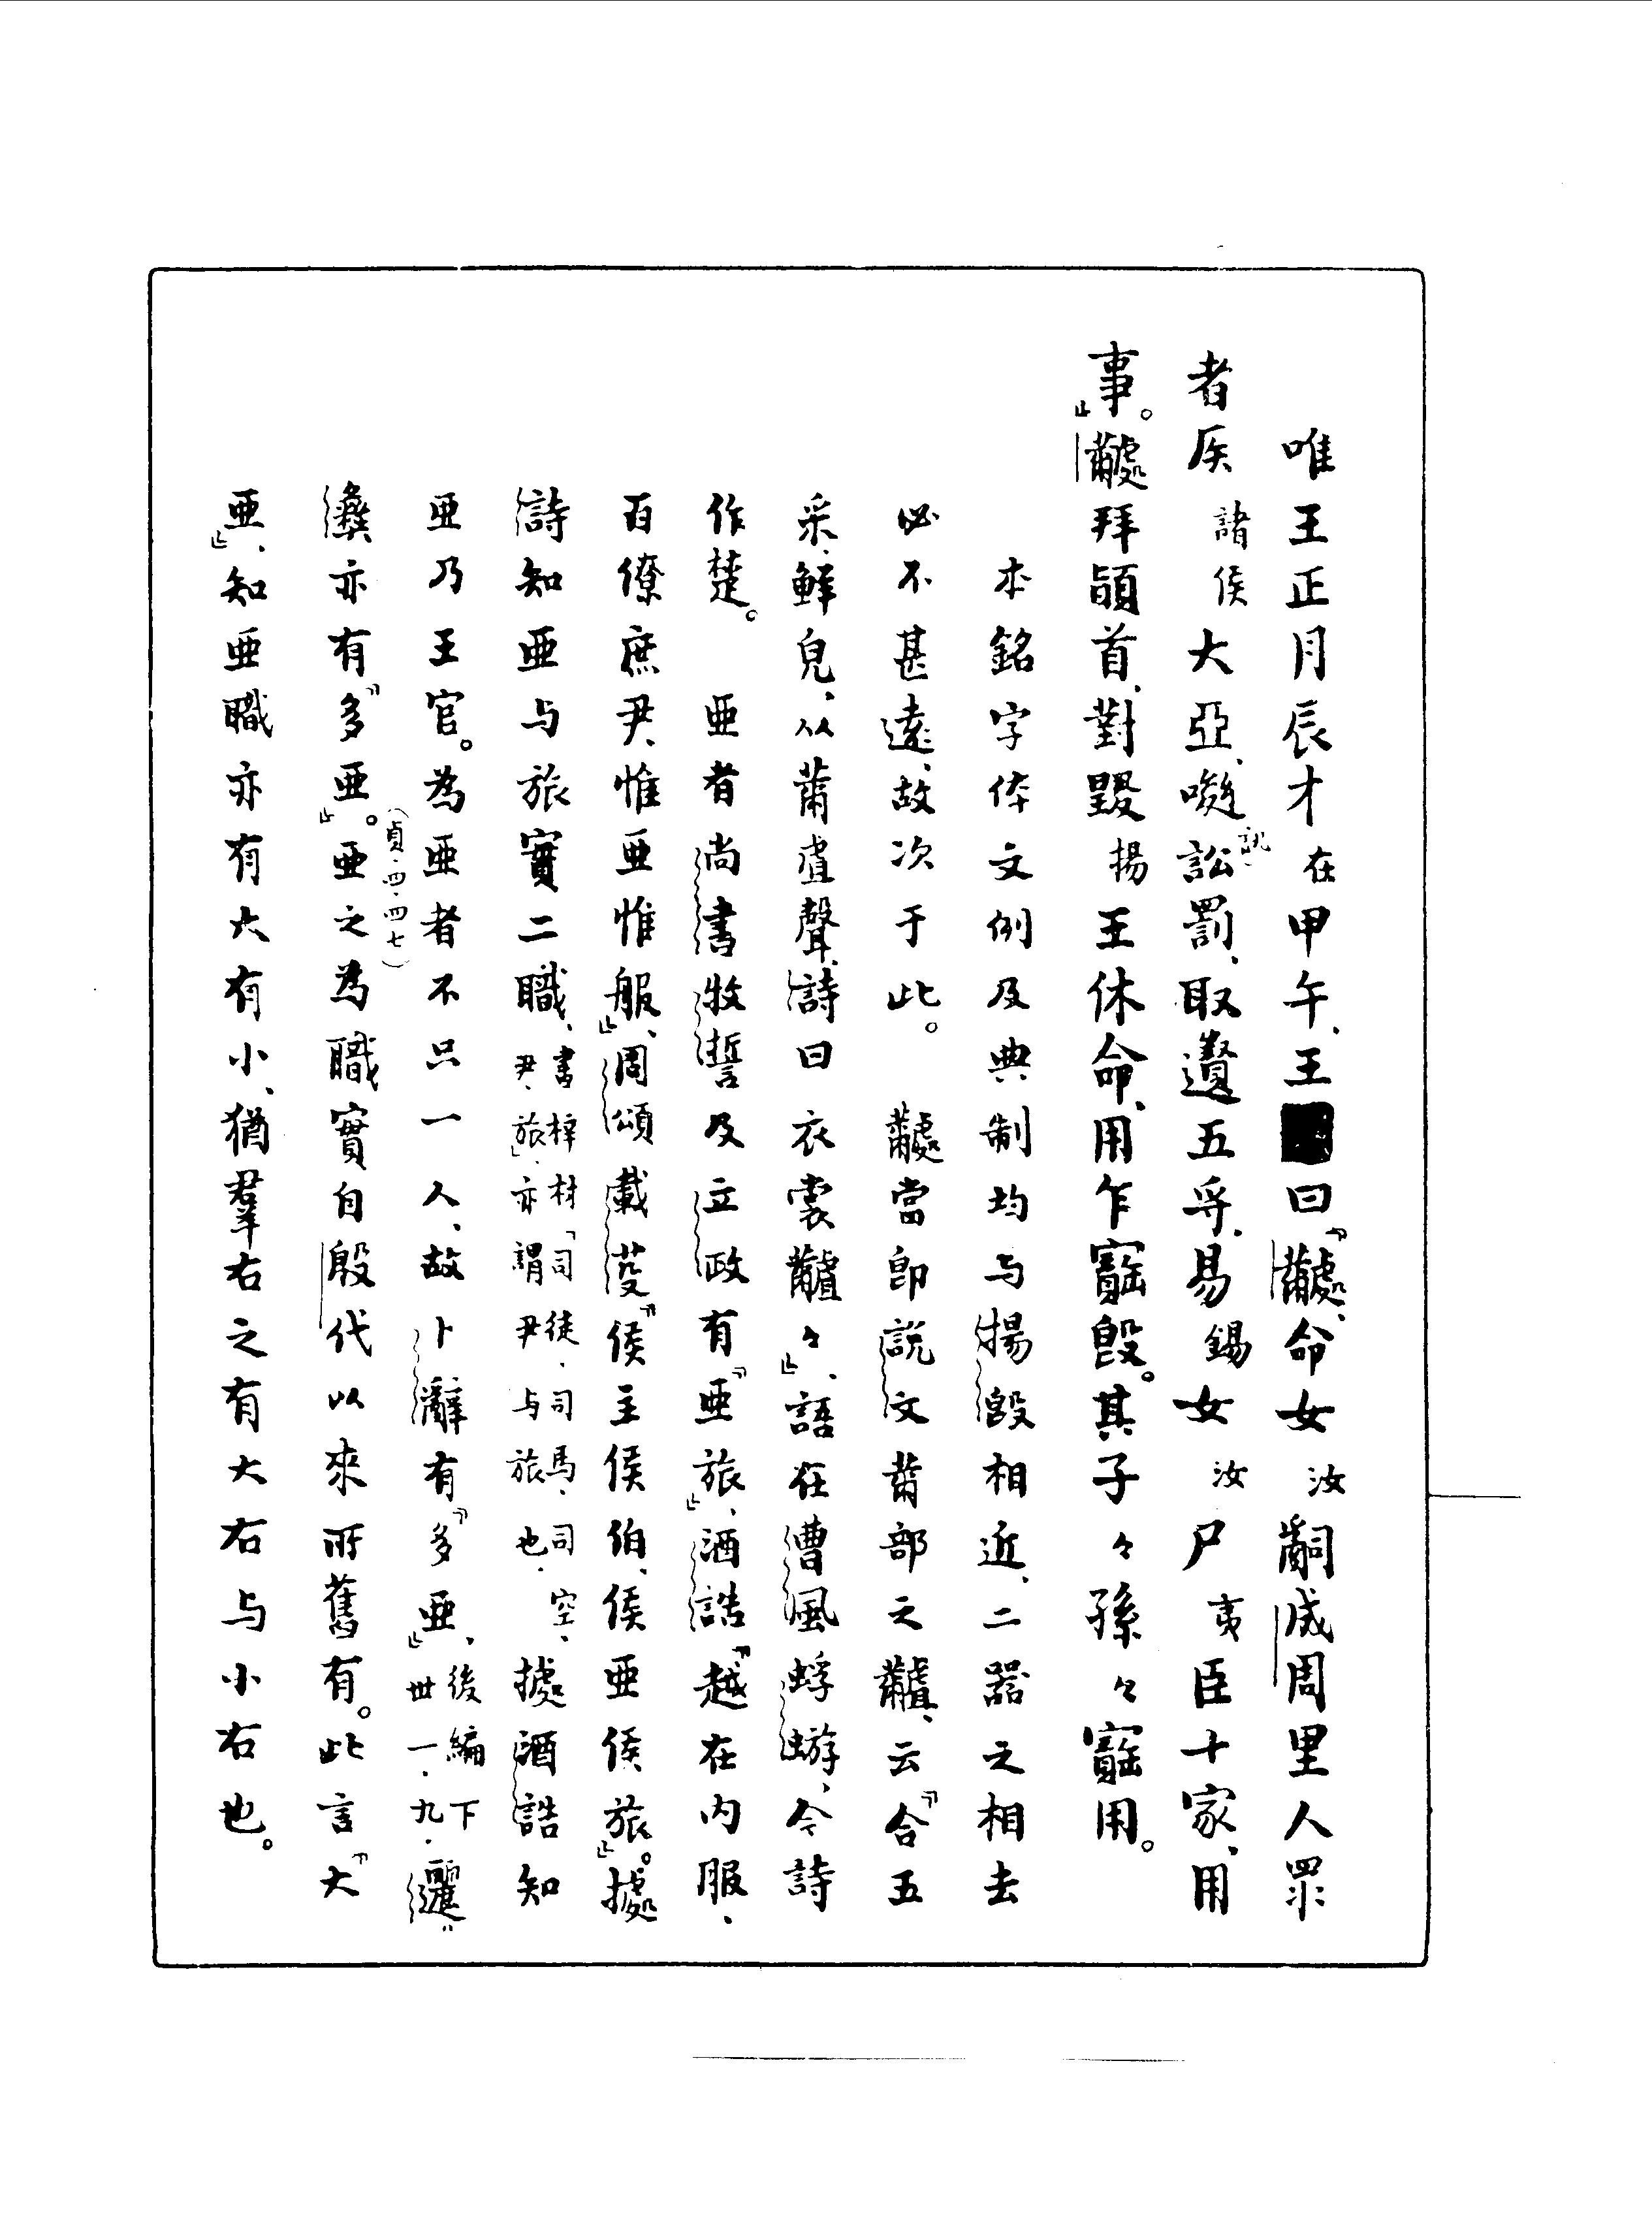 唯王正月辰才在甲午、王曰『𪓐、命女汝𤔲成周里人眔
者𥎦諸侯大亞、噝訊訟罰、取遺五寽、易錫女汝尸夷臣十家、用
事』。拜䭫首、對揚王休命、用乍寶𣪘。其子々孫々寶用。
本銘字体文例及典制均与揚𣪘相近、二器之相去
必不甚遠、故次于此。 當即說文黹部之、云『合五
采、鮮皃、从黹虘聲、詩曰衣裳々』、語在曹風蜉蝣、今詩
作楚。 亜者尚書牧誓及立政有『亜旅』、酒誥『越在内服、
百僚庶尹、惟亜惟服』、周頌載芟『侯主侯伯、侯亜侯旅』。據
詩知亜与旅實二職、書梓材「司徒、司馬、司空、尹、旅」、亦謂尹与旅也。據酒誥知
亜乃王官。為亜者不只一人、故卜辭有『多亜』、後編下卌一・九・
彝亦有『多亜』。(貞・四・四七)亜之為職實自殷代以來所舊有。此言『大
亜』、知亜職亦有大有小、猶羣右之有大右与小右也。